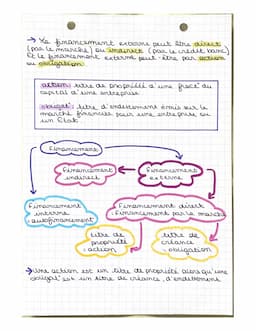 → Le financement externe peut être direct
(par le marché) ou indirect (par le crédit banc)
Et le financement externe peut-être par action
ou obligation.
action: titre de propriété d'une fract° du
capital d'une entreprise
obligat°: titre d'endettement émis sur le
marché financier pour une entreprise ou
un Etat.
Financement
Financement
indirect
Financement
externe
Financement
interne
autofinancement
Financement direct
Financement par le marché
titre de
propriété
action
titre de
créance
obligation
→ Une action est un titre de propriété alors qu'une
obligat° est un titre de créance, d'endettement